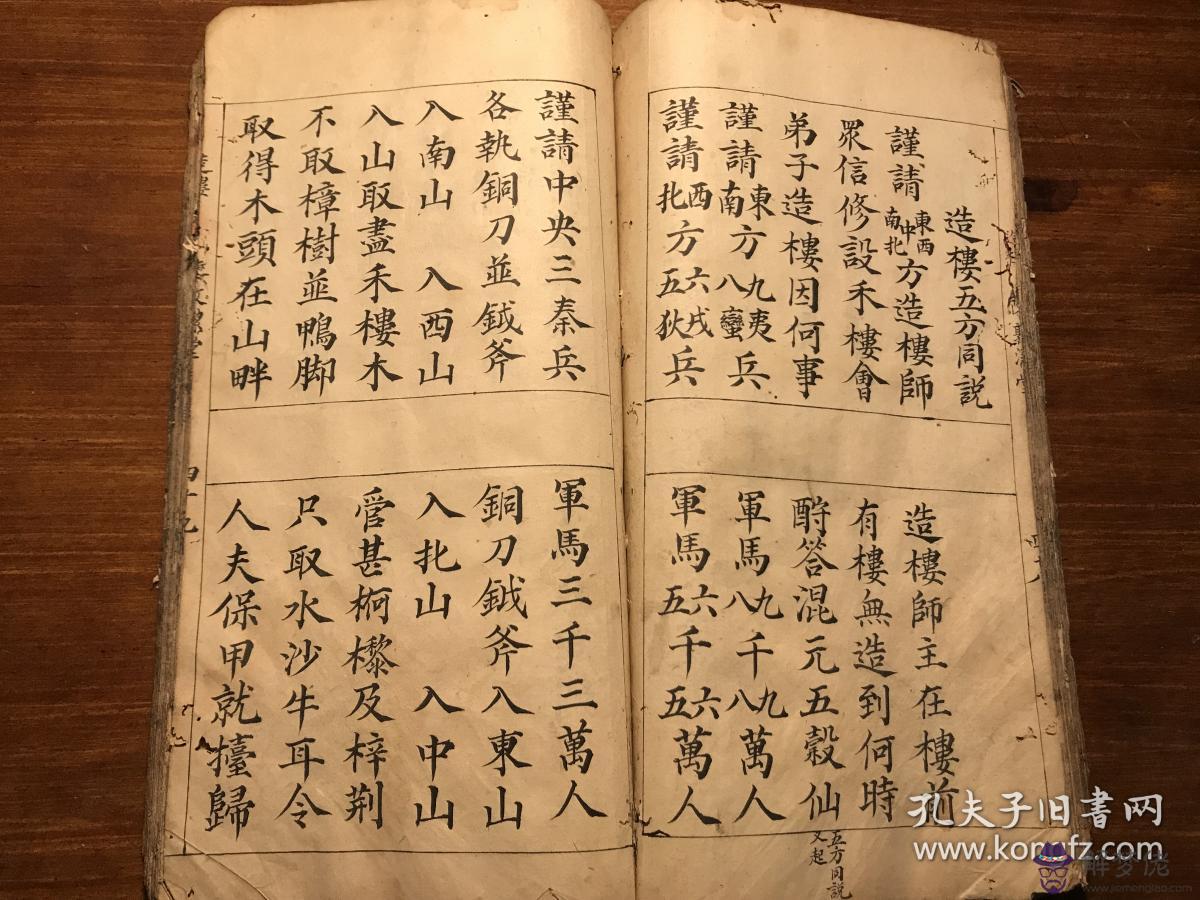 造樓五方同説
謹請東西中南北方造樓師
造樓師主在樓前
眾信修設禾樓會
有樓無造到何時
弟子造樓因何事
酧答混元五穀仙
謹請東南方九夷八蠻兵
軍馬九八千九八萬人
謹請西北方六戎五狄兵
軍馬六五千六五萬人
五方同説
又起
謹請中央三秦兵
軍馬三千三萬人
各執銅刀並鉞斧
銅刀鉞斧入東山
入南山 入西山
入北山 入中山
入山取盡禾樓木
管甚及梓荆
不取樟樹並鴨脚
只取水沙牛耳令
取得木頭在山畔
人夫保甲就擡歸
四十九
孔夫子旧書网
www.kongfz.com
解梦佬
www.jiemenglao.com